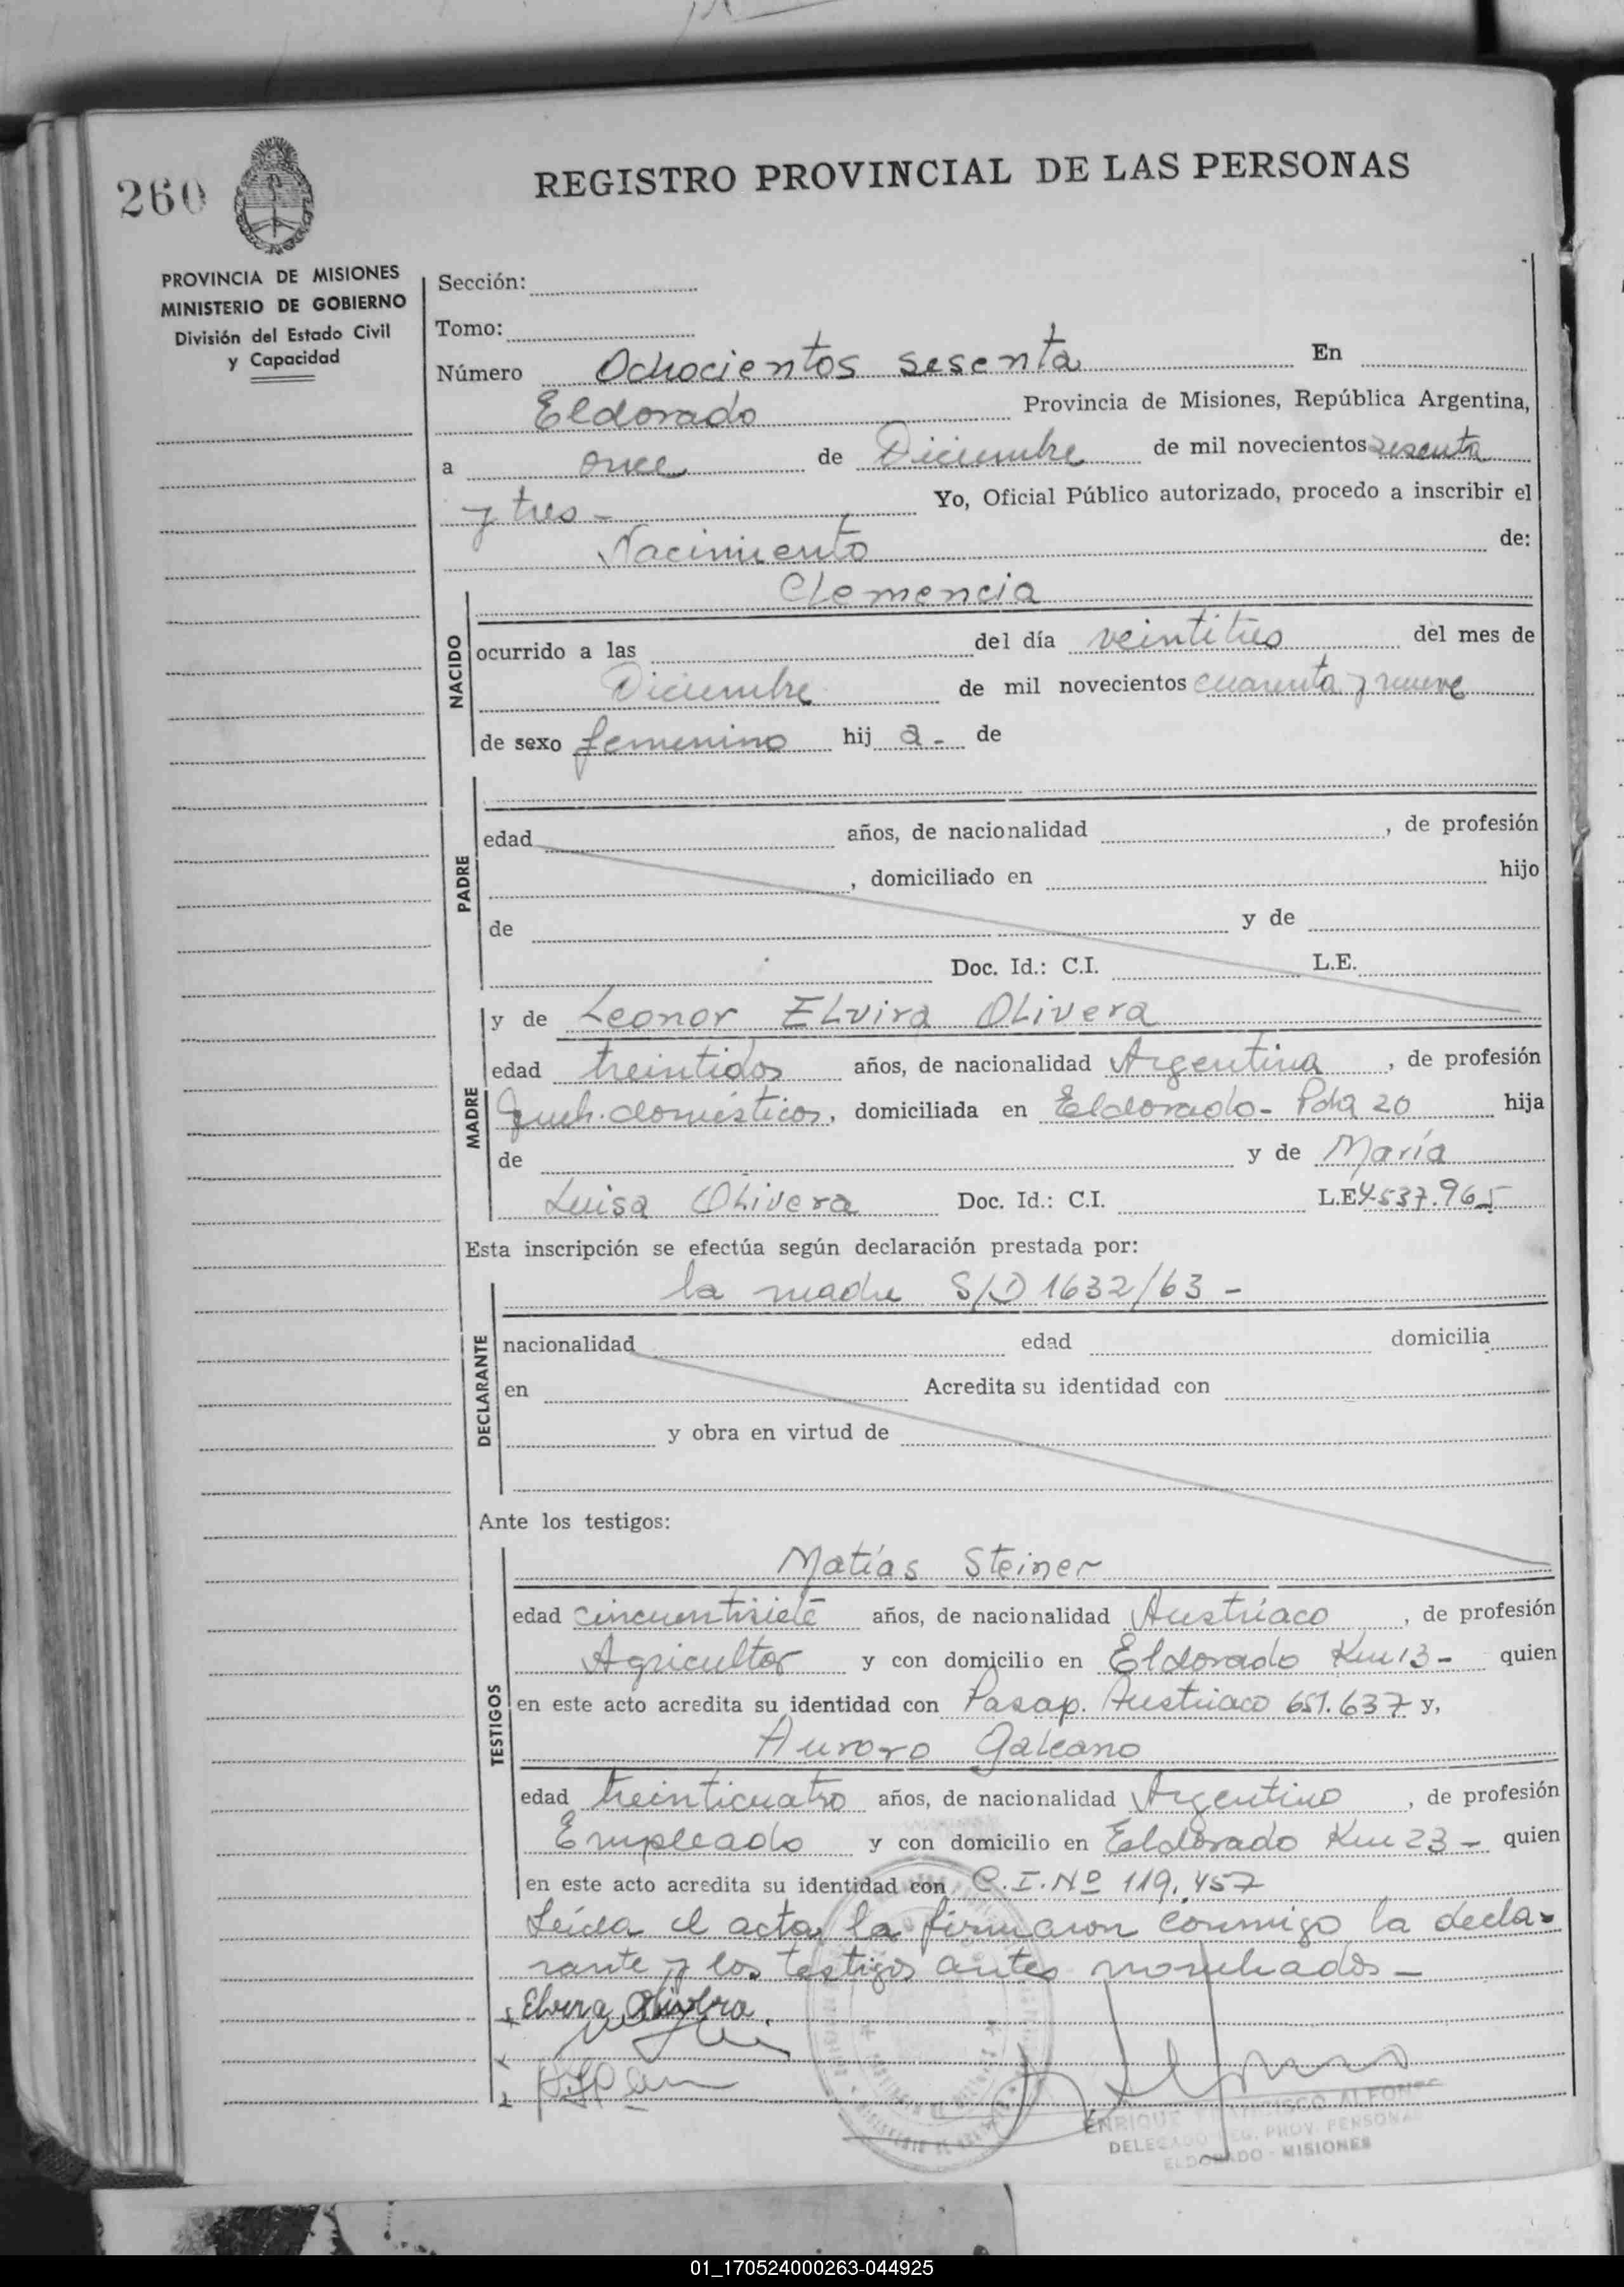 260
REGISTRO PROVINCIAL DE LAS PERSONAS
PROVINCIA DE MISIONES
MINISTERIO DE GOBIERNO
División del Estado Civil
y Capacidad
Sección:
Tomo:
Número Ochocientos sesenta En
Eldorado Provincia de Misiones, República Argentina,
a once de Diciembre de mil novecientos sesenta
y tres - Yo, Oficial Público autorizado, procedo a inscribir el
Nacimiento de:
NACIDO
Clemencia
ocurrido a las del día veintitres del mes de
Diciembre de mil novecientos cuarenta y nueve
de sexo femenino hij a - de
PADRE
edad años, de nacionalidad , de profesión
, domiciliado en hijo
de y de
Doc. Id.: C.I. L.E.
MADRE
y de Leonor Elvira Olivera
edad treintidos años, de nacionalidad Argentina , de profesión
domésticos, domiciliada en Eldorado - Pda 20 hija
de y de María
Luisa Olivera Doc. Id.: C.I. L.E. 4.537.965
Esta inscripción se efectúa según declaración prestada por:
DECLARANTE
la madre S/D 1632/63 -
nacionalidad edad domicilia
en Acredita su identidad con
y obra en virtud de
Ante los testigos:
TESTIGOS
Matías Steiner
edad cincuentisiete años, de nacionalidad Austríaco , de profesión
Agricultor y con domicilio en Eldorado Km 13 - quien
en este acto acredita su identidad con Pasap. Austriaco 651.637 y,
Auroro Galeano
edad treinticuatro años, de nacionalidad Argentino , de profesión
Empleado y con domicilio en Eldorado Km 23 - quien
en este acto acredita su identidad con C.I. Nº 119.457
Leída el acta, la firmaron conmigo la decla-
rante y los testigos antes nombrados -
Elvira Olivera
ENRIQUE FRANCISCO ALFONSO
DELEGADO REG. PROV. PERSONAS
ELDORADO - MISIONES
01_170524000263-044925